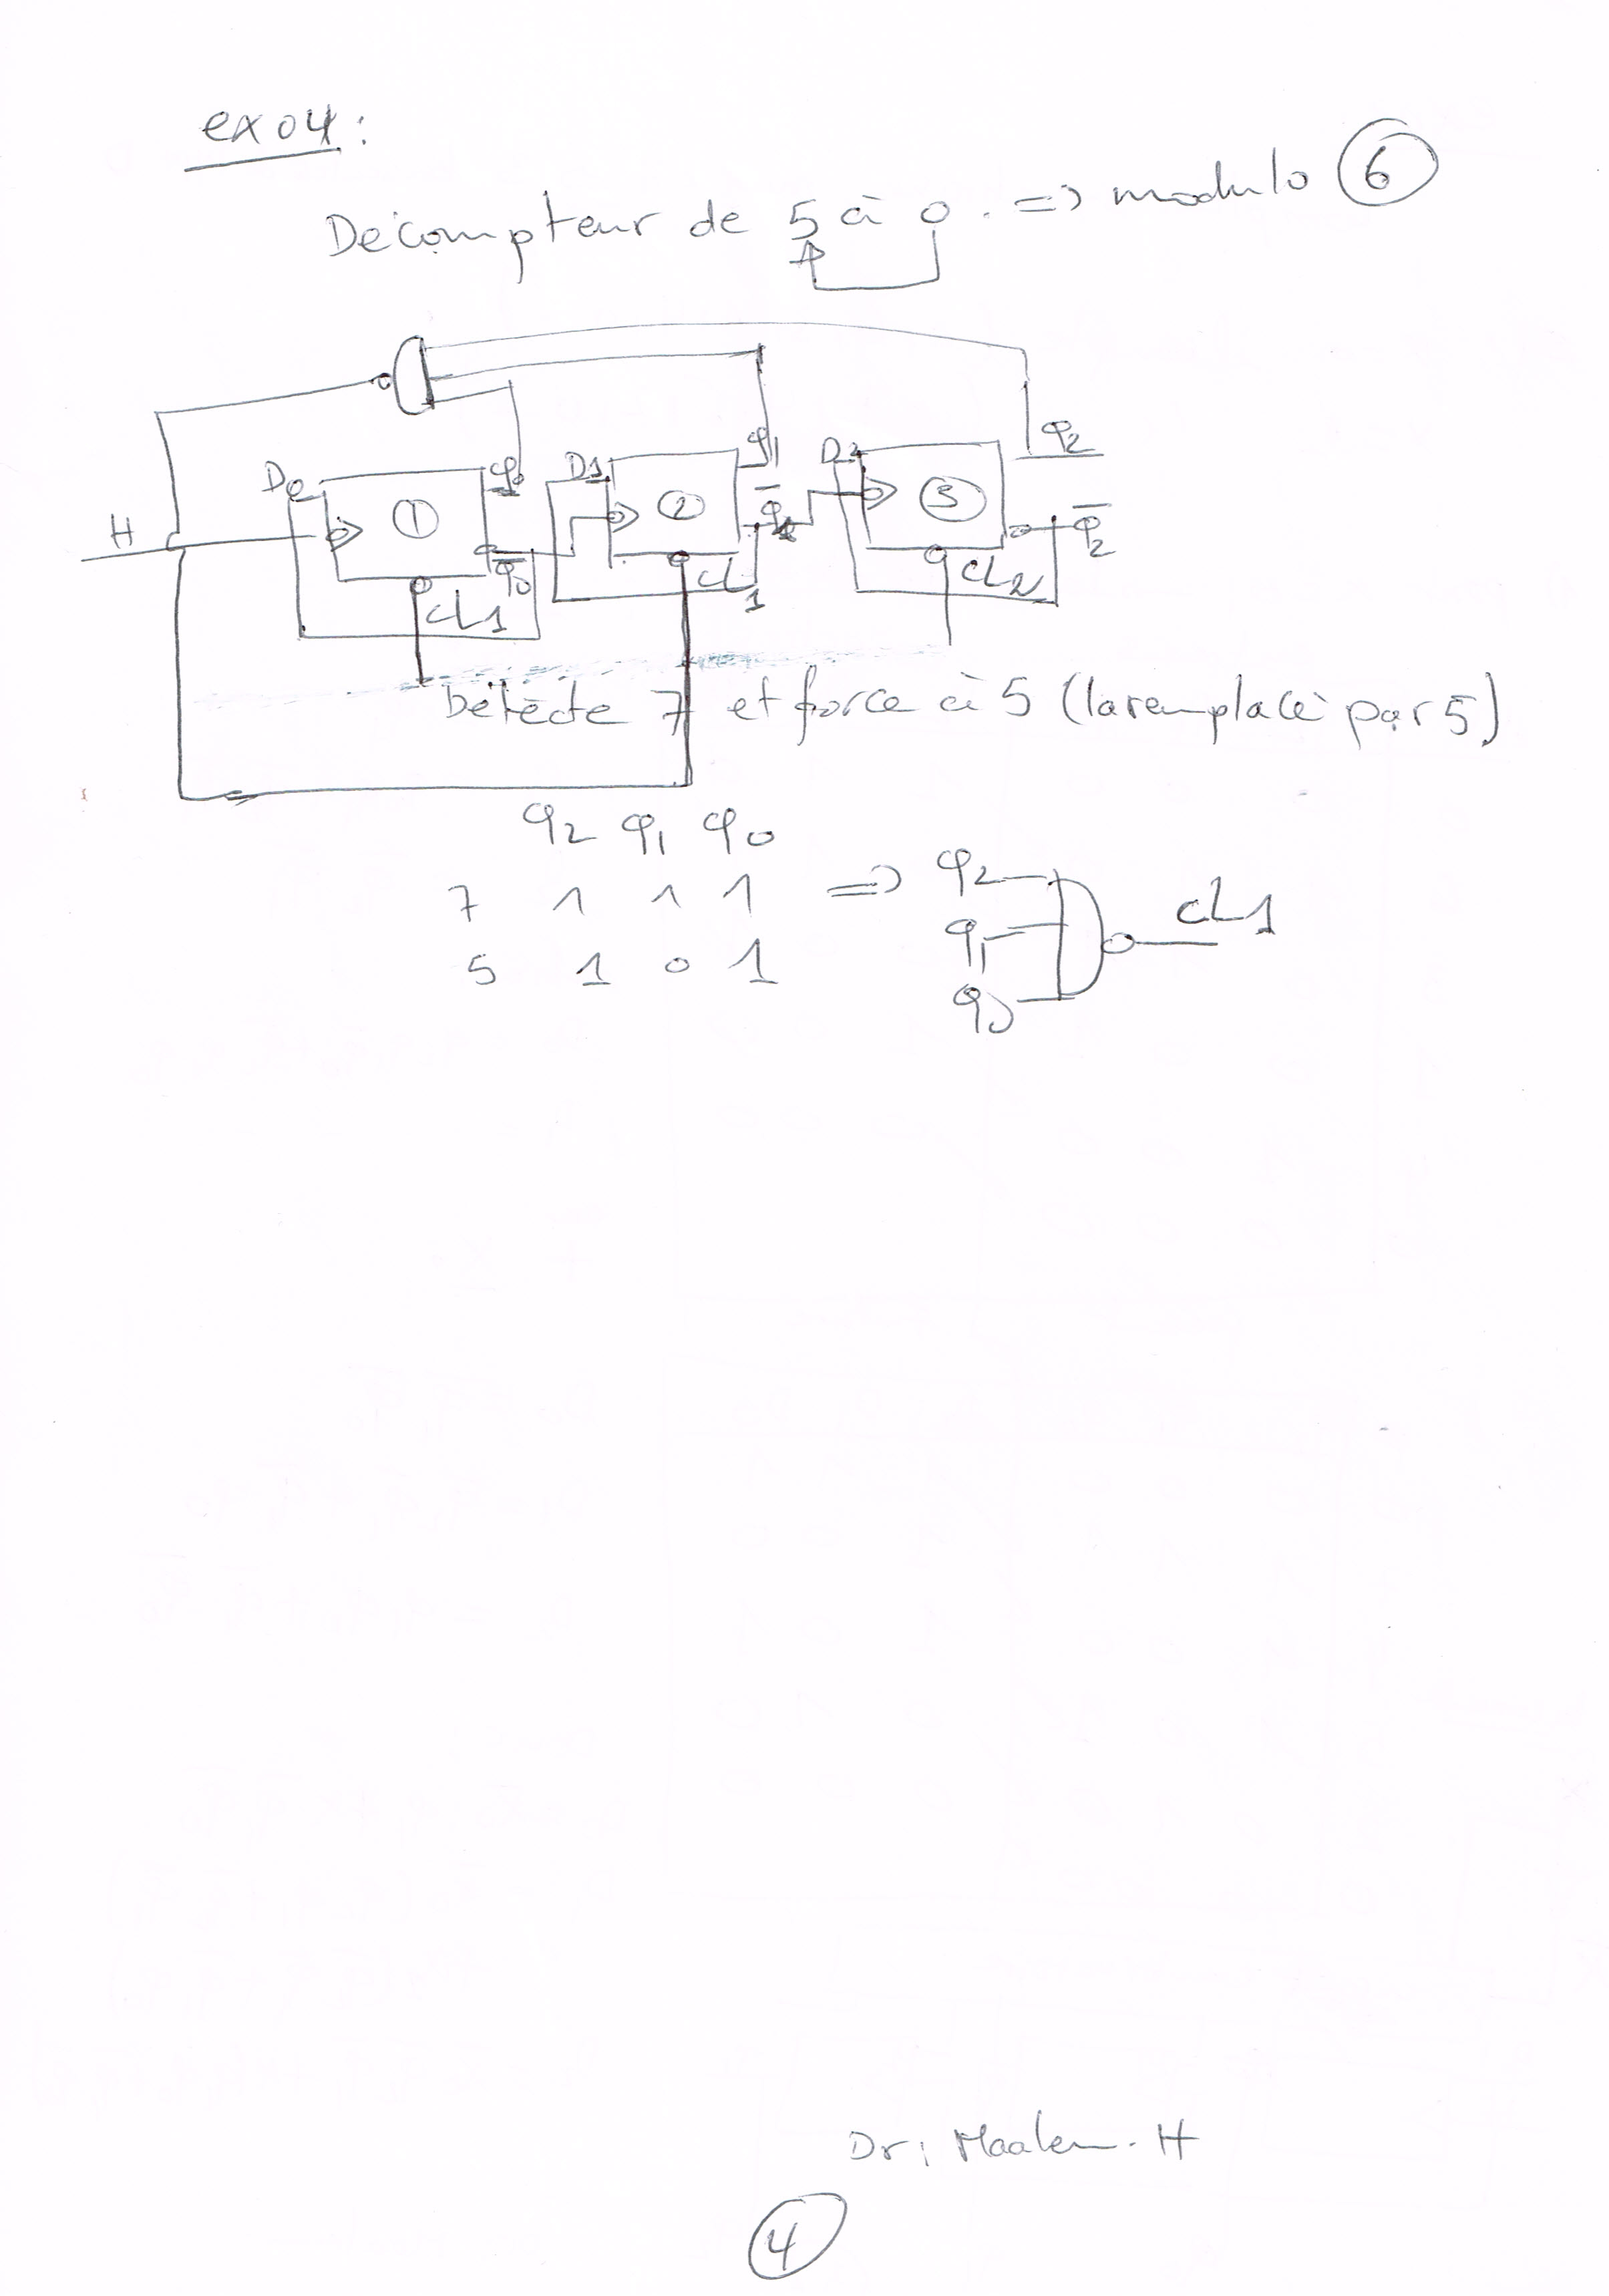 exo4:
Décompteur de 5 à 0. => modulo 6
D0 q0 D1 q1 D2 q2
H 1 2 3
q̅0 q̅1 q̅2
CL1 CL1 CL2
Détecte 7 et force à 5 (la remplacé par 5)
q2 q1 q0
7 1 1 1 => q2 q1 q0 CL1
5 1 0 1
Dr: Maalem. H
4